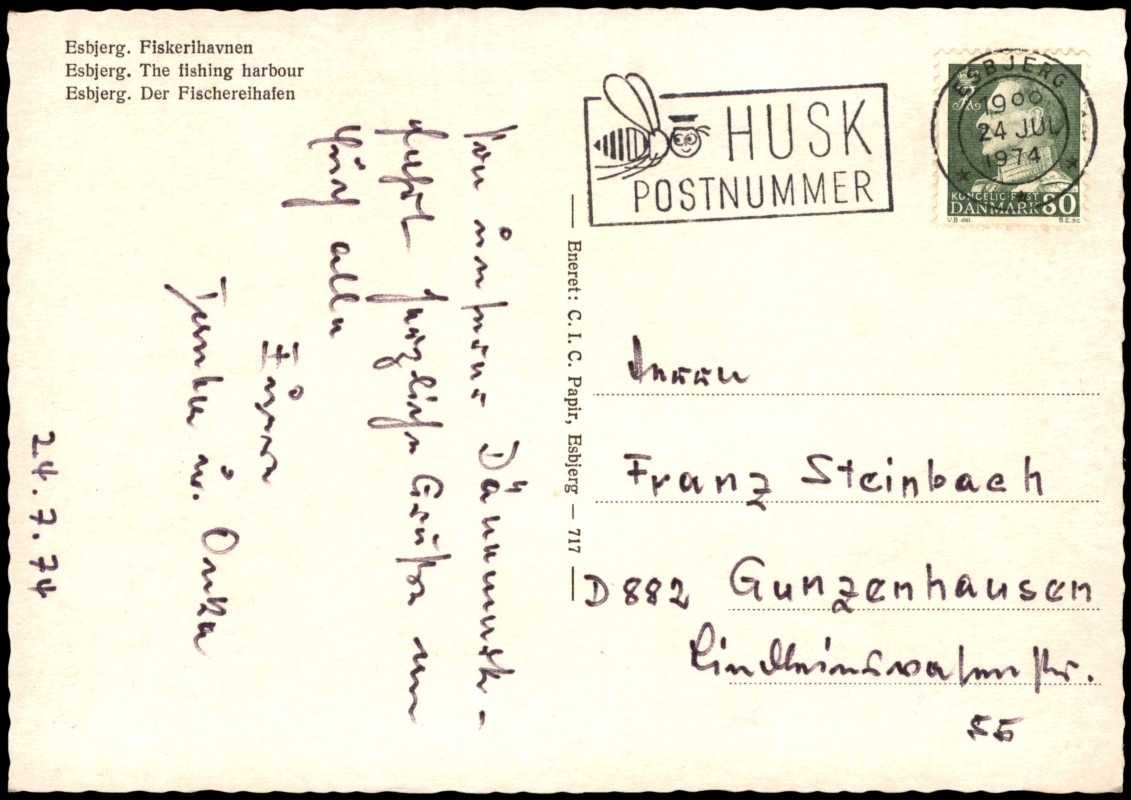 Esbjerg. Fiskerihavnen
Esbjerg. The fishing harbour
Esbjerg. Der Fischereihafen
HUSK
POSTNUMMER
ESBJERG
19 00
24 JUL
1974
KONGELIG POST
DANMARK 60
V.B. del. B.E. sc
Von unserer Dänemark-
fahrt herzliche Grüße an
Euch alle
u.
24.7.74
Eneret: C. I. C. Papir, Esbjerg – 717
Herrn
Franz Steinbach
D 882 Gunzenhausen
Lindleinswasenstr.
55